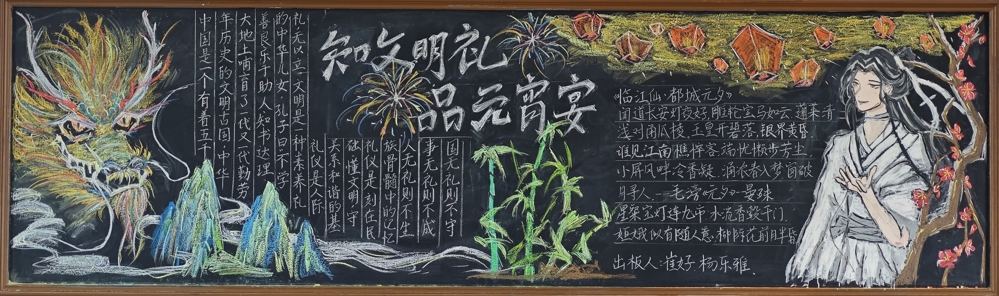 知文明礼
品元宵宴
中国是一个有着五千
年历史的文明古国,中华
大地上哺育了一代又一代勤劳
善良乐于助人知书达理
的中华儿女。孔子曰不学
礼无以立。文明是一种来来礼
礼仪是人际
关系和谐的基
础,懂文明,守
礼仪是刻在民
族骨髓中的记忆
人无礼则不生
事无礼则不成
国无礼则不守
《临江仙·都城元夕》
闻道长安灯夜好,雕轮宝马如云。蓬莱清
浅对觚棱。玉皇开碧落,银界黄昏
谁见江南憔悴客,端忧懒步芳尘。
小屏风畔冷香凝。酒浓春入梦,窗破
月寻人。——毛滂《元夕》晏殊
星粲宝灯连九市 水流香毂千门
姮娥似有随人意 柳际花前月半昏
出板人:崔好 杨乐雅